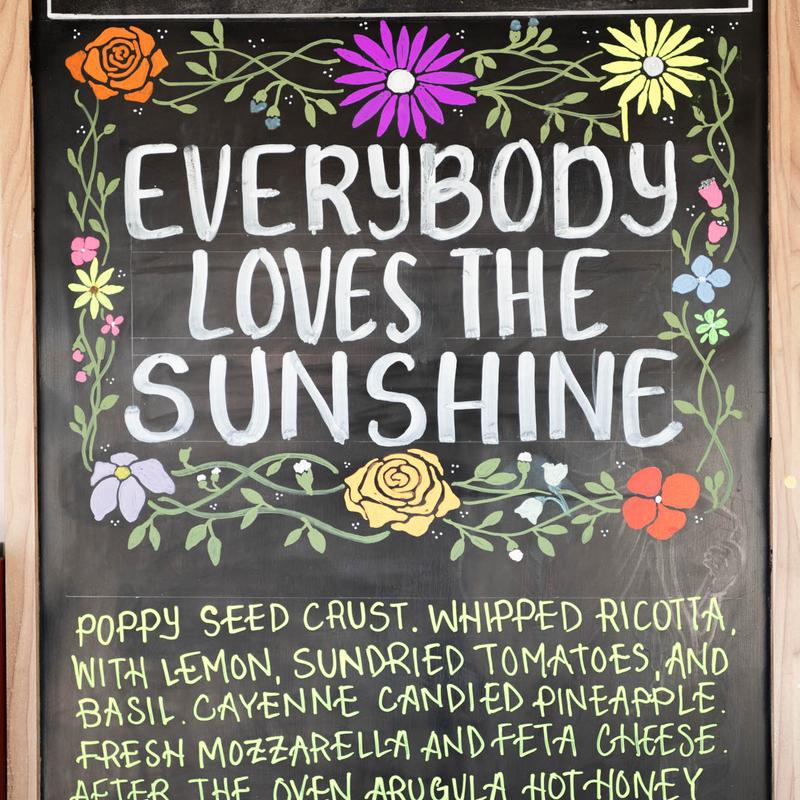 EVERYBODY
LOVES THE
SUNSHINE
POPPY SEED CRUST. WHIPPED RICOTTA,
WITH LEMON, SUNDRIED TOMATOES, AND
BASIL. CAYENNE CANDIED PINEAPPLE.
FRESH MOZZARELLA AND FETA CHEESE.
AFTER THE OVEN ARUGULA HOT HONEY